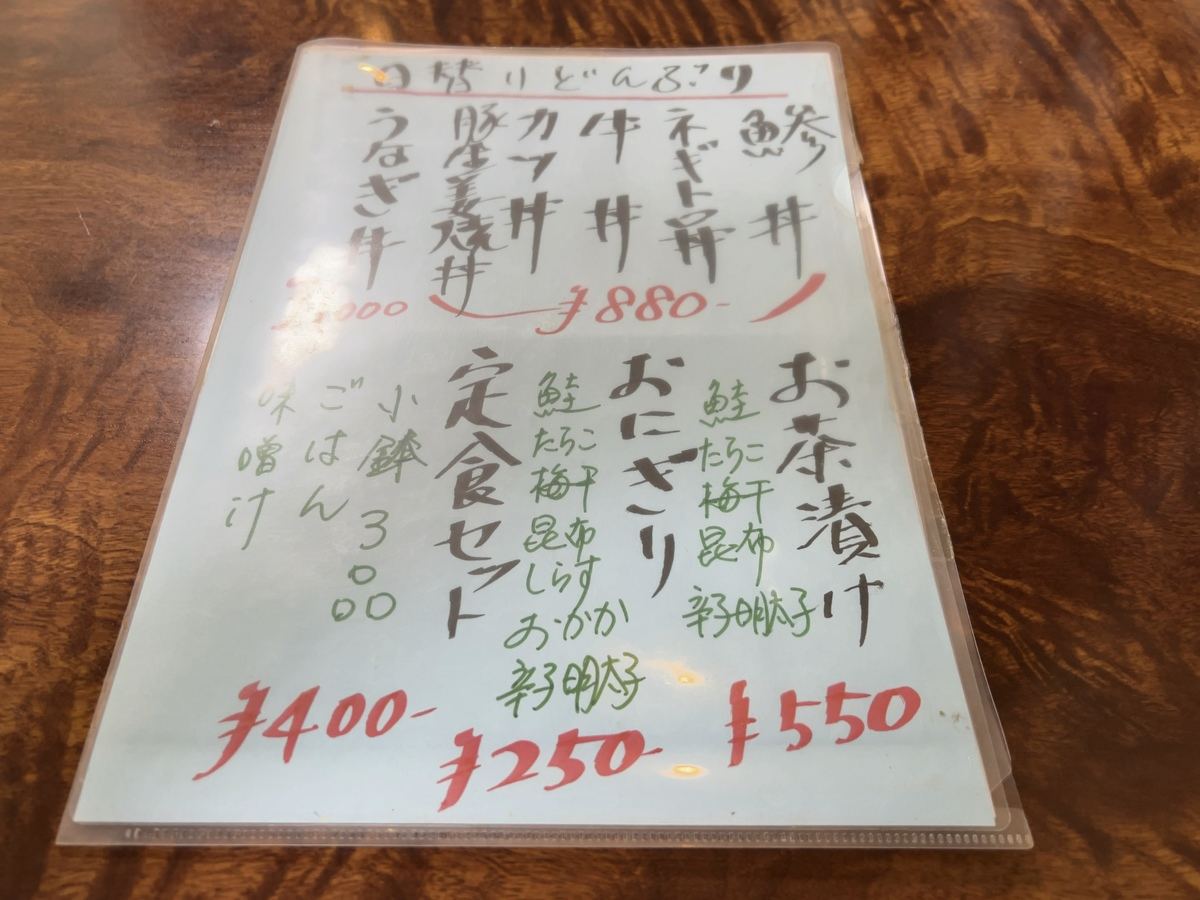 日替りどんぶり
鰺丼
ネギトロ丼
牛丼
カツ丼
豚生姜焼丼
¥880-
うなぎ丼
お茶漬け
鮭
たらこ
梅干
昆布
辛子明太子
¥550
おにぎり
鮭
たらこ
梅干
昆布
しらす
おかか
辛子明太子
¥250-
定食セット
小鉢3
ごはん
味噌汁
¥400-